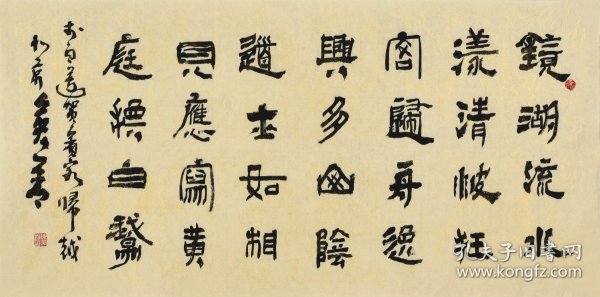 鏡湖流水
漾清波狂
客歸舟逸
興多山陰
道士如相
見應寫黃
庭換白鵝
李白送賀賓客歸越
孔夫子旧书网
www.kongfz.com